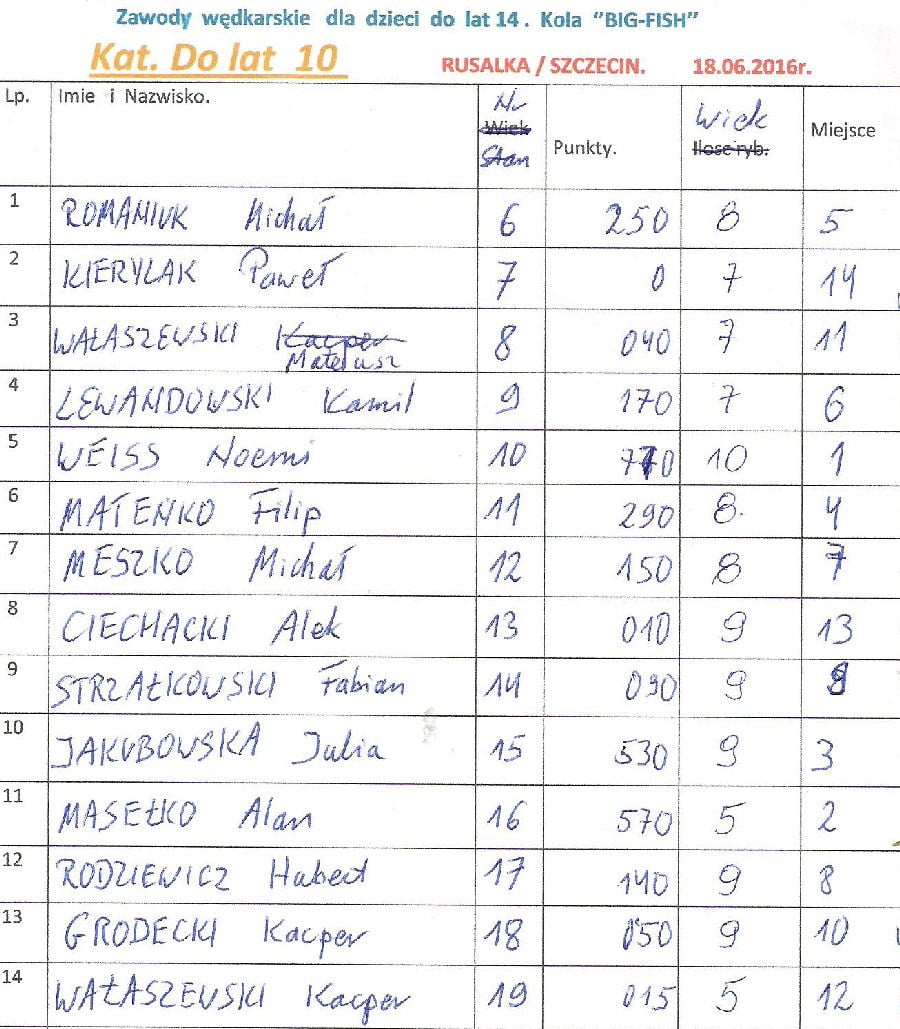 Zawody wędkarskie dla dzieci do lat 14. Kola "BIG-FISH"
Kat. Do lat 10 RUSALKA / SZCZECIN. 18.06.2016r.
Lp. Imie i Nazwisko. Nr Wiek Stan Punkty. Wiek Ilose ryb. Miejsce
1 ROMANIUK Michał 6 250 8 5
2 KIERYLAK Paweł 7 0 7 14
3 WAŁASZEWSKI Kacper Mateusz 8 040 7 11
4 LEWANDOWSKI Kamil 9 170 7 6
5 WEISS Noemi 10 770 10 1
6 MATEŃKO Filip 11 290 8. 4
7 MESZKO Michał 12 150 8 7
8 CIECHACKI Alek 13 010 9 13
9 STRZAŁKOWSKI Fabian 14 090 9 9
10 JAKUBOWSKA Julia 15 530 9 3
11 MASEŁKO Alan 16 570 5 2
12 RODZIEWICZ Hubert 17 140 9 8
13 GRODECKI Kacper 18 050 9 10
14 WAŁASZEWSKI Kacper 19 015 5 12